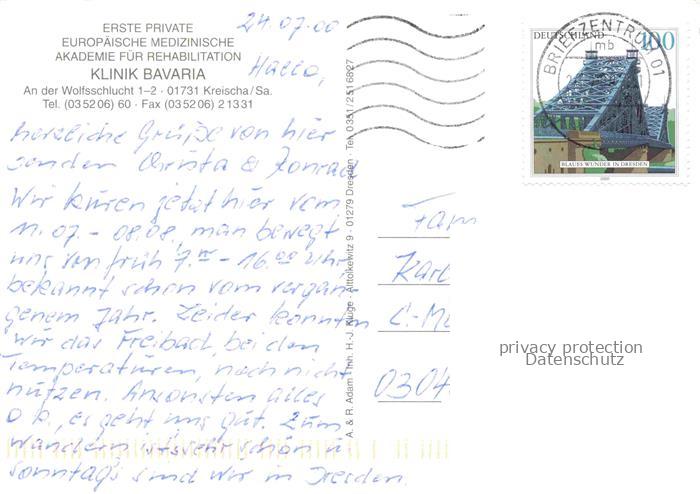 24.07.00
ERSTE PRIVATE
EUROPÄISCHE MEDIZINISCHE
AKADEMIE FÜR REHABILITATION
KLINIK BAVARIA
An der Wolfsschlucht 1–2 · 01731 Kreischa/Sa.
Tel. (03 52 06) 60 · Fax (03 52 06) 2 13 31
Hallo,
herzliche Grüße von hier
senden Christa & Konrad
Wir kuren jetzt hier vom
11.07. – 08.08, man bewegt
uns von früh 7.00 – 16.00 Uhr
bekannt schon vom vergan-
genem Jahr. Leider konnten
wir das Freibad, bei den
Temperaturen, noch nicht
nützen. Ansonsten alles
o.k., es geht uns gut. Zum
Wandern ist sehr schön u.
Sonntags sind wir in Dresden.
A. & R. Adam · Inh. H.-J. Kluge · Alttolkewitz 9 · 01279 Dresden · Tel. 0351/2516827
DEUTSCHLAND 100
BLAUES WUNDER IN DRESDEN
2000
BRIEFZENTRUM 01
mb
Fam
Karl
0304
privacy protection
Datenschutz